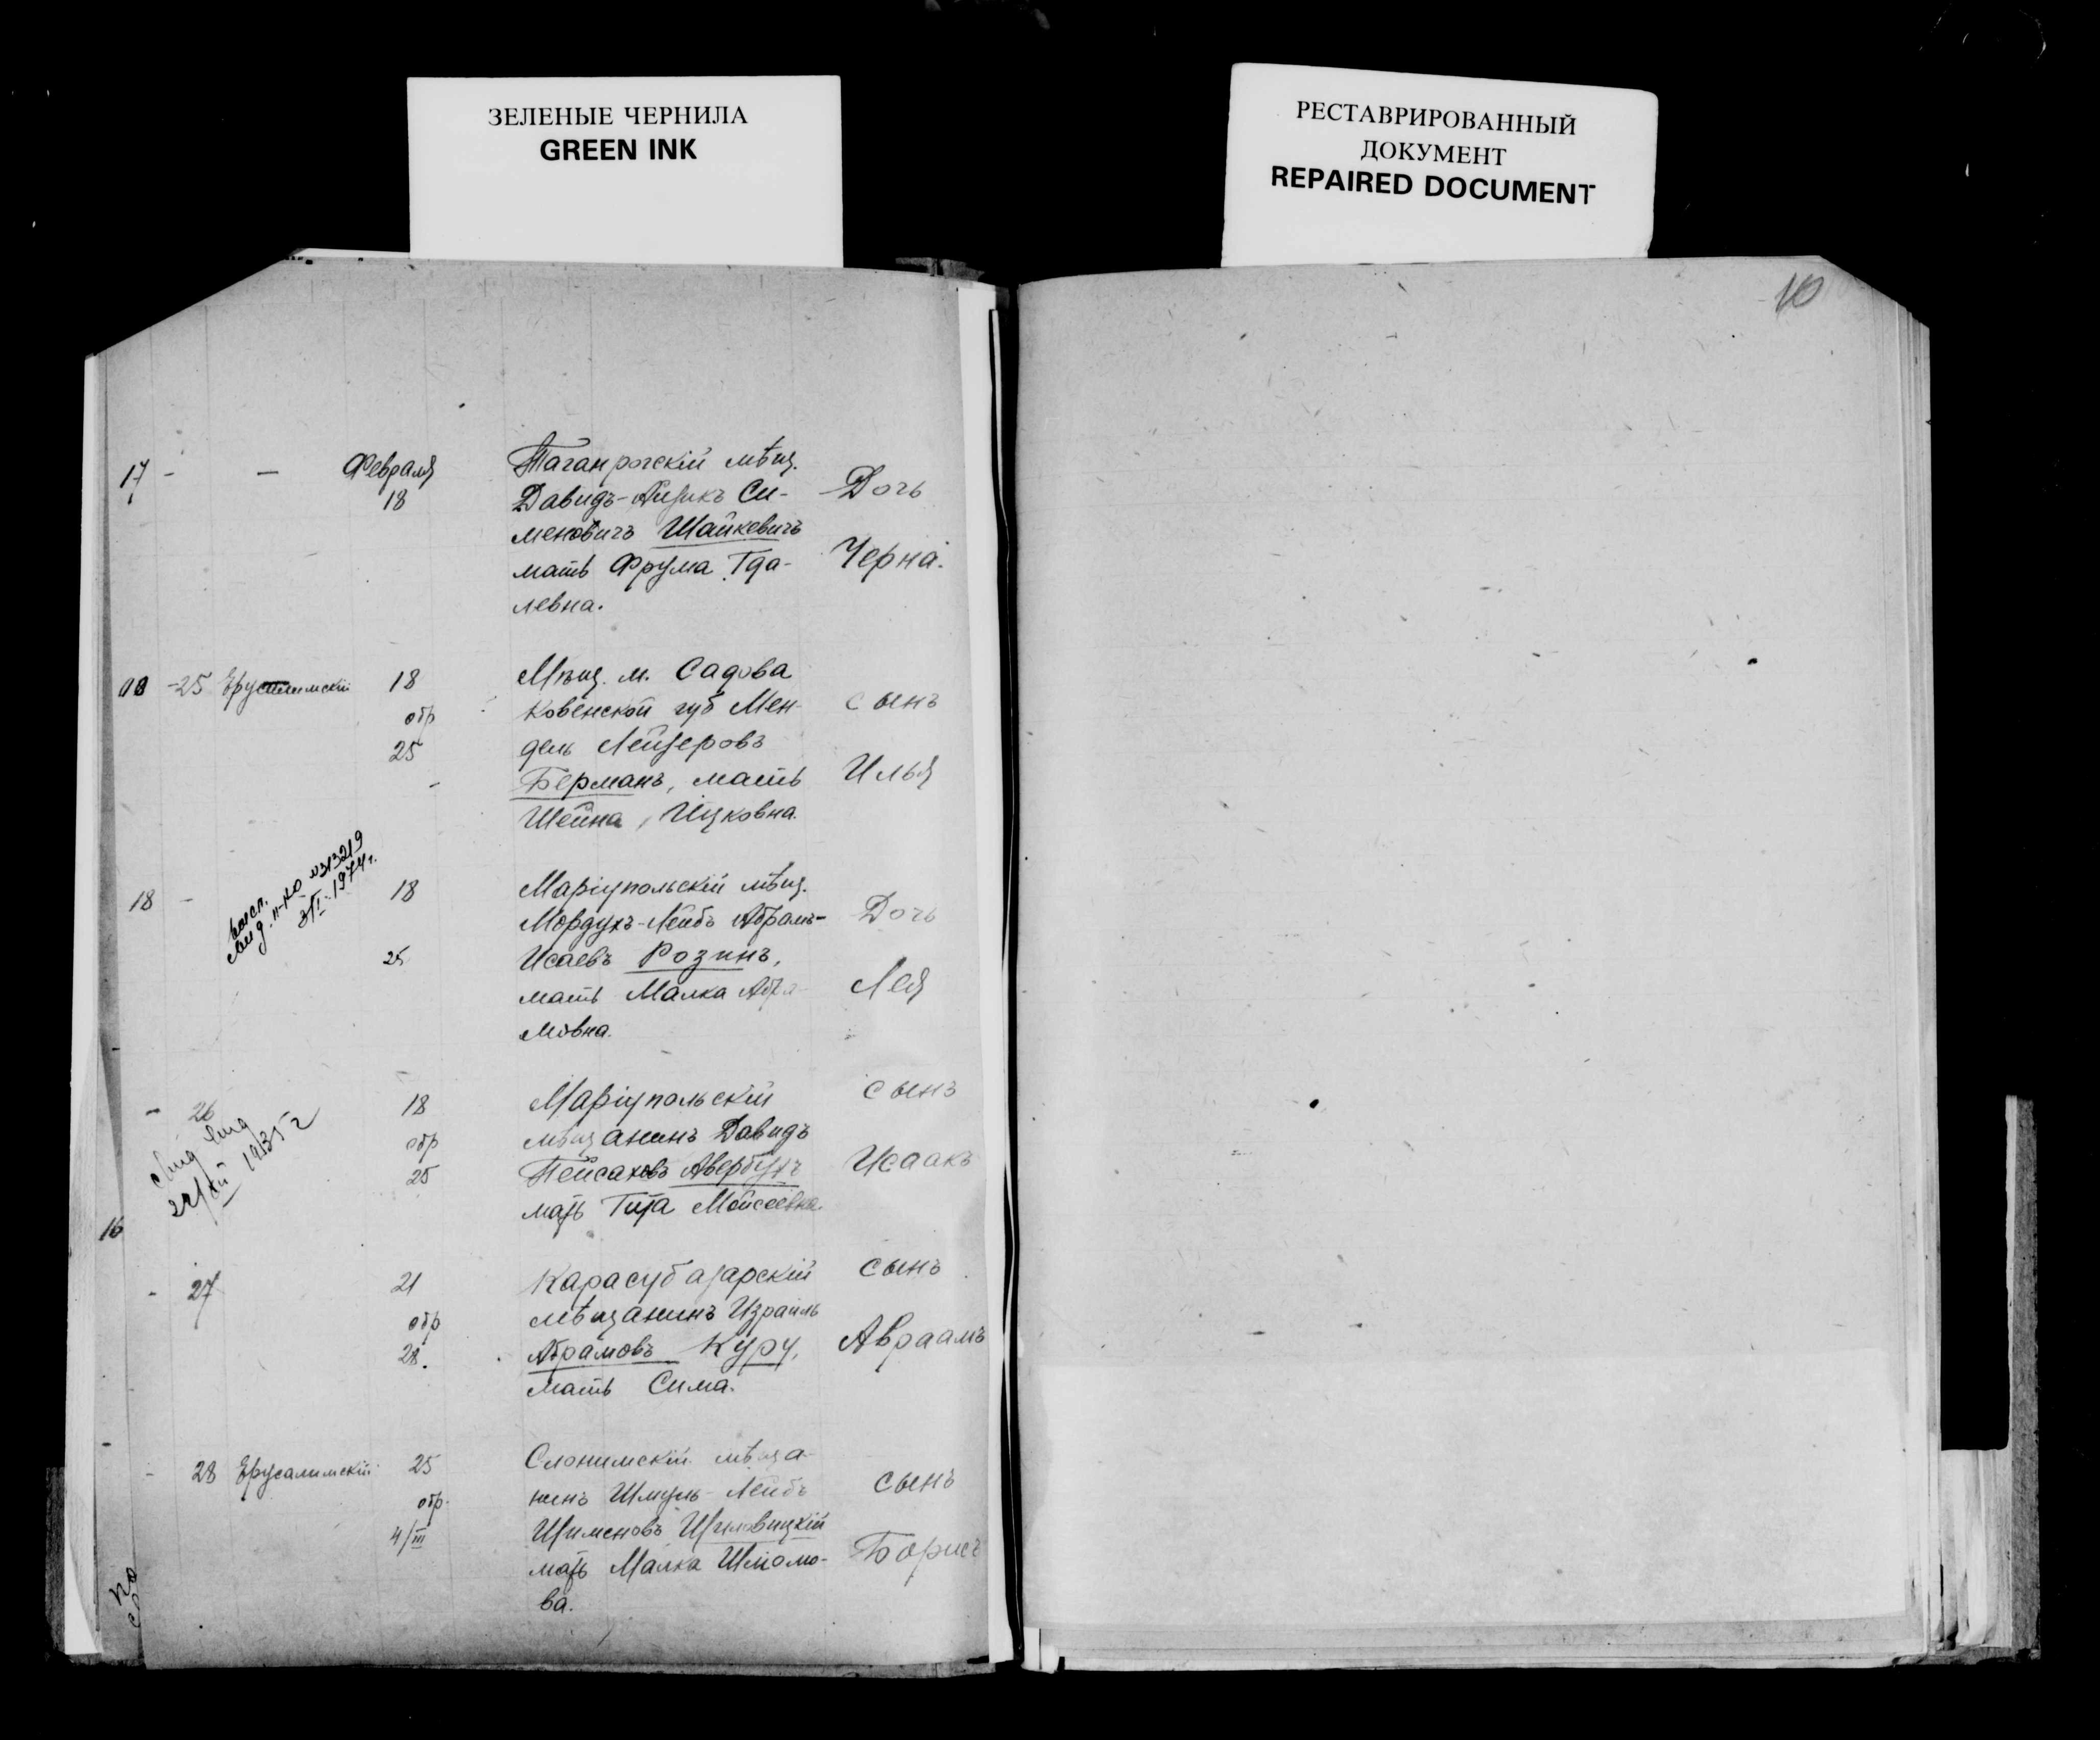 ЗЕЛЕНЫЕ ЧЕРНИЛА
GREEN INK
РЕСТАВРИРОВАННЫЙ
ДОКУМЕНТ
REPAIRED DOCUMENT
10
17 - - Февраля
18
Таганрогскій мѣщ.
Давидъ-Айзикъ Си-
меновичъ Шайкевичъ
мать Фрума Гда-
левна.
Дочь
Черна.
-25 Ерусалимскій 18
обр
25
Мѣщ. м. Садова
Ковенской губ Мен-
дель Лейзеровъ
Берманъ, мать
Шейна, Ицковна.
сынъ
Илья
18 - 18
25
№313219
3/I-1974г.
Маріупольскій мѣщ.
Мордухъ-Лейбъ Абрамъ-
Исаевъ Розинъ,
мать Малка Абра-
мовна.
Дочь
Лея
- 26 18
обр
25
Маріупольскій
мѣщанинъ Давидъ
Пейсаховъ Авербухъ
мать Гита Мойсеевна.
сынъ
Исаакъ
16
- 27 21
обр
28.
Карасубазарскій
мѣщанинъ Израиль
Абрамовъ Куру,
мать Сима.
сынъ
Авраамъ
- 28 Ерусалимскій 25
обр.
4/III
Слонимскій мѣща-
нинъ Шмуль-Лейбъ
Шименовъ
мать Малка Шломо-
ва.
сынъ
Борисъ